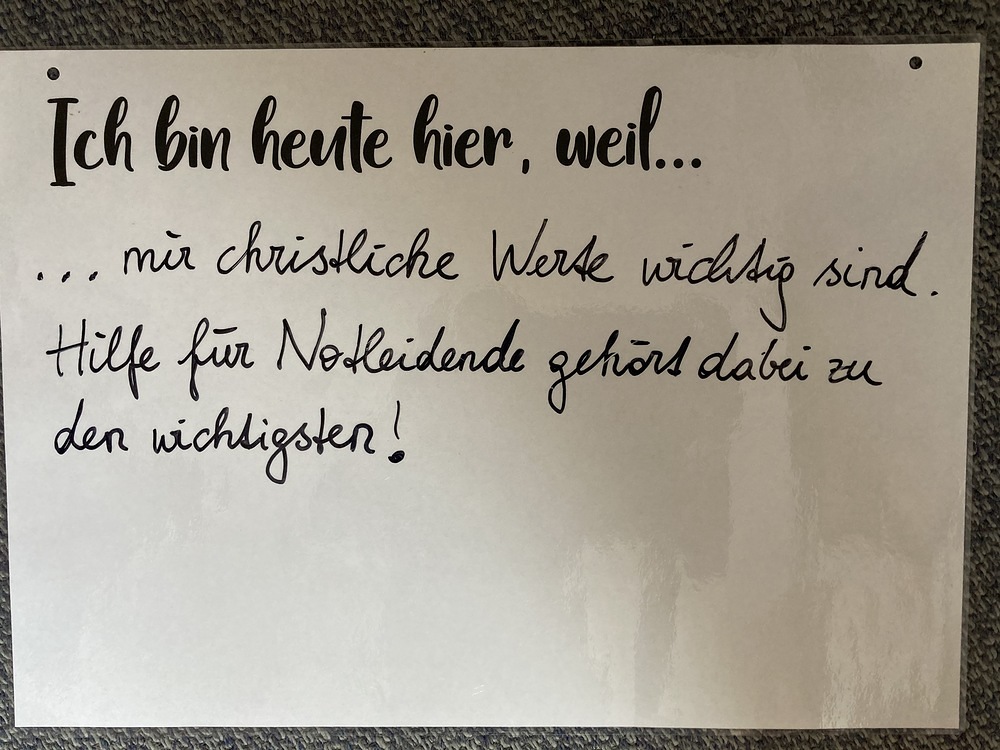 Ich bin heute hier, weil...
... mir christliche Werte wichtig sind.
Hilfe für Notleidende gehört dabei zu
den wichtigsten!